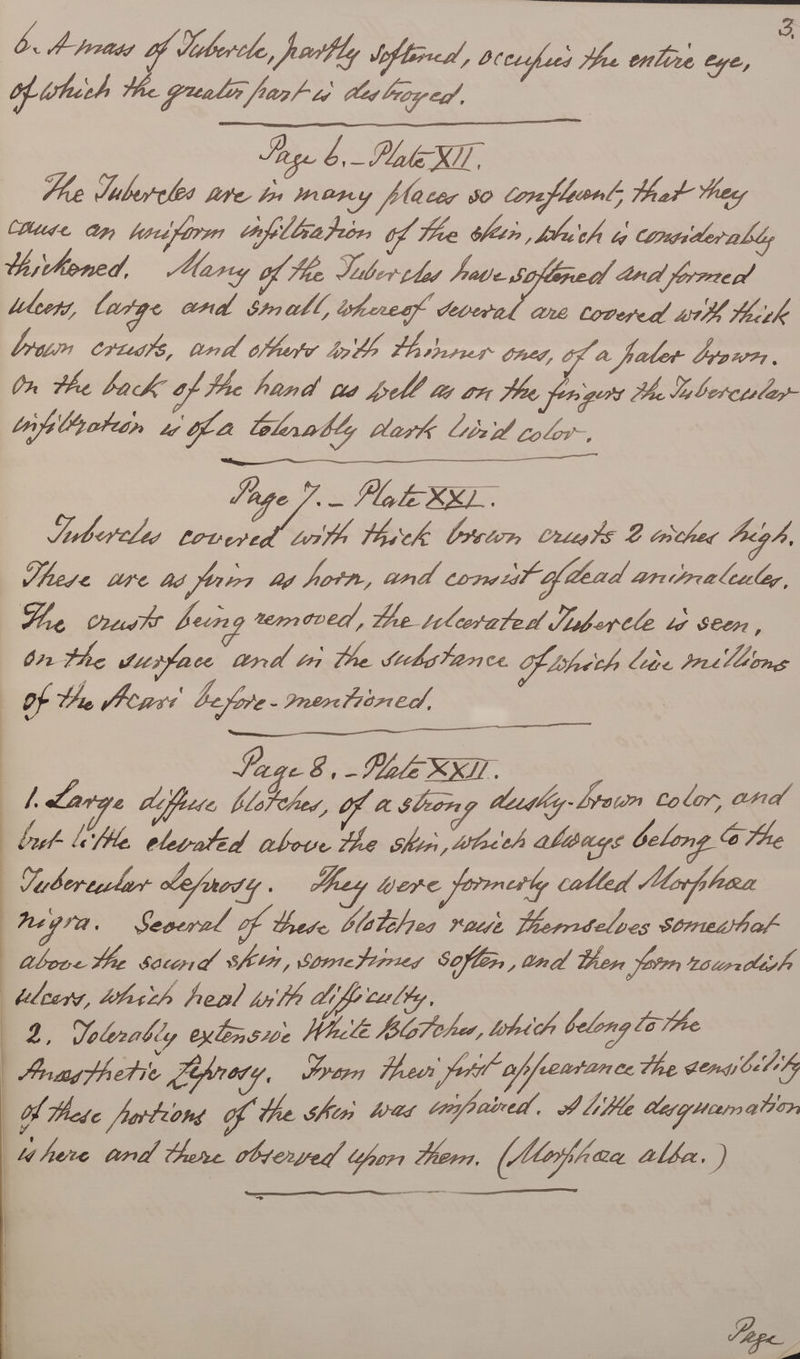 3.
6. A mass of Tubercle, partly softened, occupies the entire eye,
of which the greater part is destroyed.
Page 6. – Plate XII.
The Tubercles are in many places so confluent, that they
cause an uniform infiltration of the skin, which is considerably
thickened. Many of the Tubercles have softened and formed
ulcers, large and small, whereof several are covered with thick
brown crusts, and others with thinner ones, of a paler brown.
On the back of the hand as well as on the fingers the Tubercular
infiltration is of a tolerably dark livid color.
Page 7. – Plate XXI.
Tubercles covered with thick brown crusts 2 inches high.
These are as firm as horn, and consist of dead animalcules.
The crusts being removed, the ulcerated Tubercle is seen,
on the surface and in the substance of which live millions
of the Acari before-mentioned.
Page 8. – Plate XXII.
1. Large diffuse blotches, of a strong dusky-brown color, and
but little elevated above the skin, which always belong to the
Tubercular Leprosy. They were formerly called Morphœa
nigra. Several of these blotches raise themselves somewhat
above the sound skin, sometimes soften, and then form roundish
ulcers, which heal with difficulty.
2. Tolerably extensive White Blotches, which belong to the
Anæsthetic Leprosy. From their first appearance the sensibility
of these portions of the skin was impaired. A little desquamation
is here and there observed upon them. (Morphœa alba.)
Page